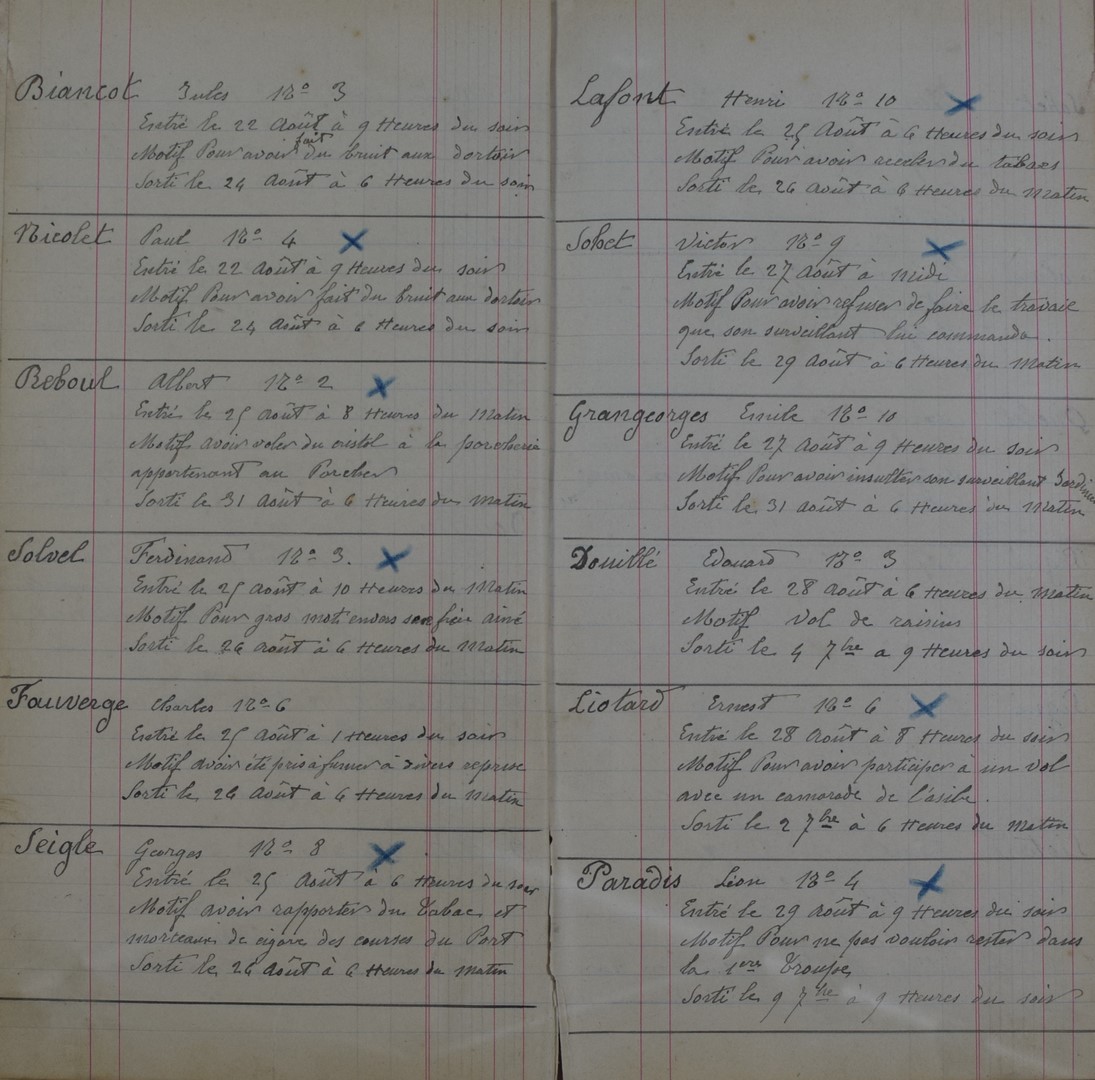 Biancot Jules No 3
Entré le 22 Août à 9 Heures du soir
Motif Pour avoir fait du bruit aux dortoir
Sorti le 24 Août à 6 Heures du soir
Nicolet Paul No 4
Entré le 22 Août à 9 Heures du soir
Motif Pour avoir fait du bruit aux dortoir
Sorti le 24 Août à 6 Heures du soir
Reboul Albert No 2
Entré le 25 Août à 8 Heures du Matin
Motif avoir voler du cristol à la porcherie
appartenant au Porcher
Sorti le 31 Août à 6 Heures du Matin
Solvel Ferdinand No 3.
Entré le 25 Août à 10 Heures du Matin
Motif Pour gros mot envers son frère ainé
Sorti le 26 Août à 6 Heures du Matin
Fauverge Charles No 6
Entré le 25 Août à 1 Heures du soir
Motif avoir été pris à fumer à divers reprise
Sorti le 26 Août à 6 Heures du Matin
Seigle Georges No 8
Entré le 25 Août à 6 Heures du soir
Motif avoir rapporter du Tabac et
morceaux de cigare des courses du Port
Sorti le 26 Août à 6 Heures du Matin
Lafont Henri No 10
Entré le 25 Août à 6 Heures du soir
Motif Pour avoir receler du tabacs
Sorti le 26 Août à 6 Heures du Matin
Sobet Victor No 9
Entré le 27 Août à midi
Motif Pour avoir refuser de faire le travail
que son surveillant lui commanda.
Sorti le 29 Août à 6 Heures du Matin
Grangeorges Emile No 10
Entré le 27 Août à 9 Heures du soir
Motif Pour avoir insulter son surveillant Jardinier
Sorti le 31 Août à 6 Heures du Matin
Douillé Edouard No 3
Entré le 28 Août à 6 Heures du Matin
Motif vol de raisins
Sorti le 4 7bre a 9 Heures du soir
Liotard Ernest No 6
Entré le 28 Août à 8 Heures du soir
Motif Pour avoir participer à un vol
avec un camarade de l'asile.
Sorti le 2 7bre à 6 Heures du Matin
Paradis Léon No 4
Entré le 29 Août à 9 Heures du soir
Motif Pour ne pas vouloir rester dans
la 1ère Troupe
Sorti le 9 7bre à 9 Heures du soir